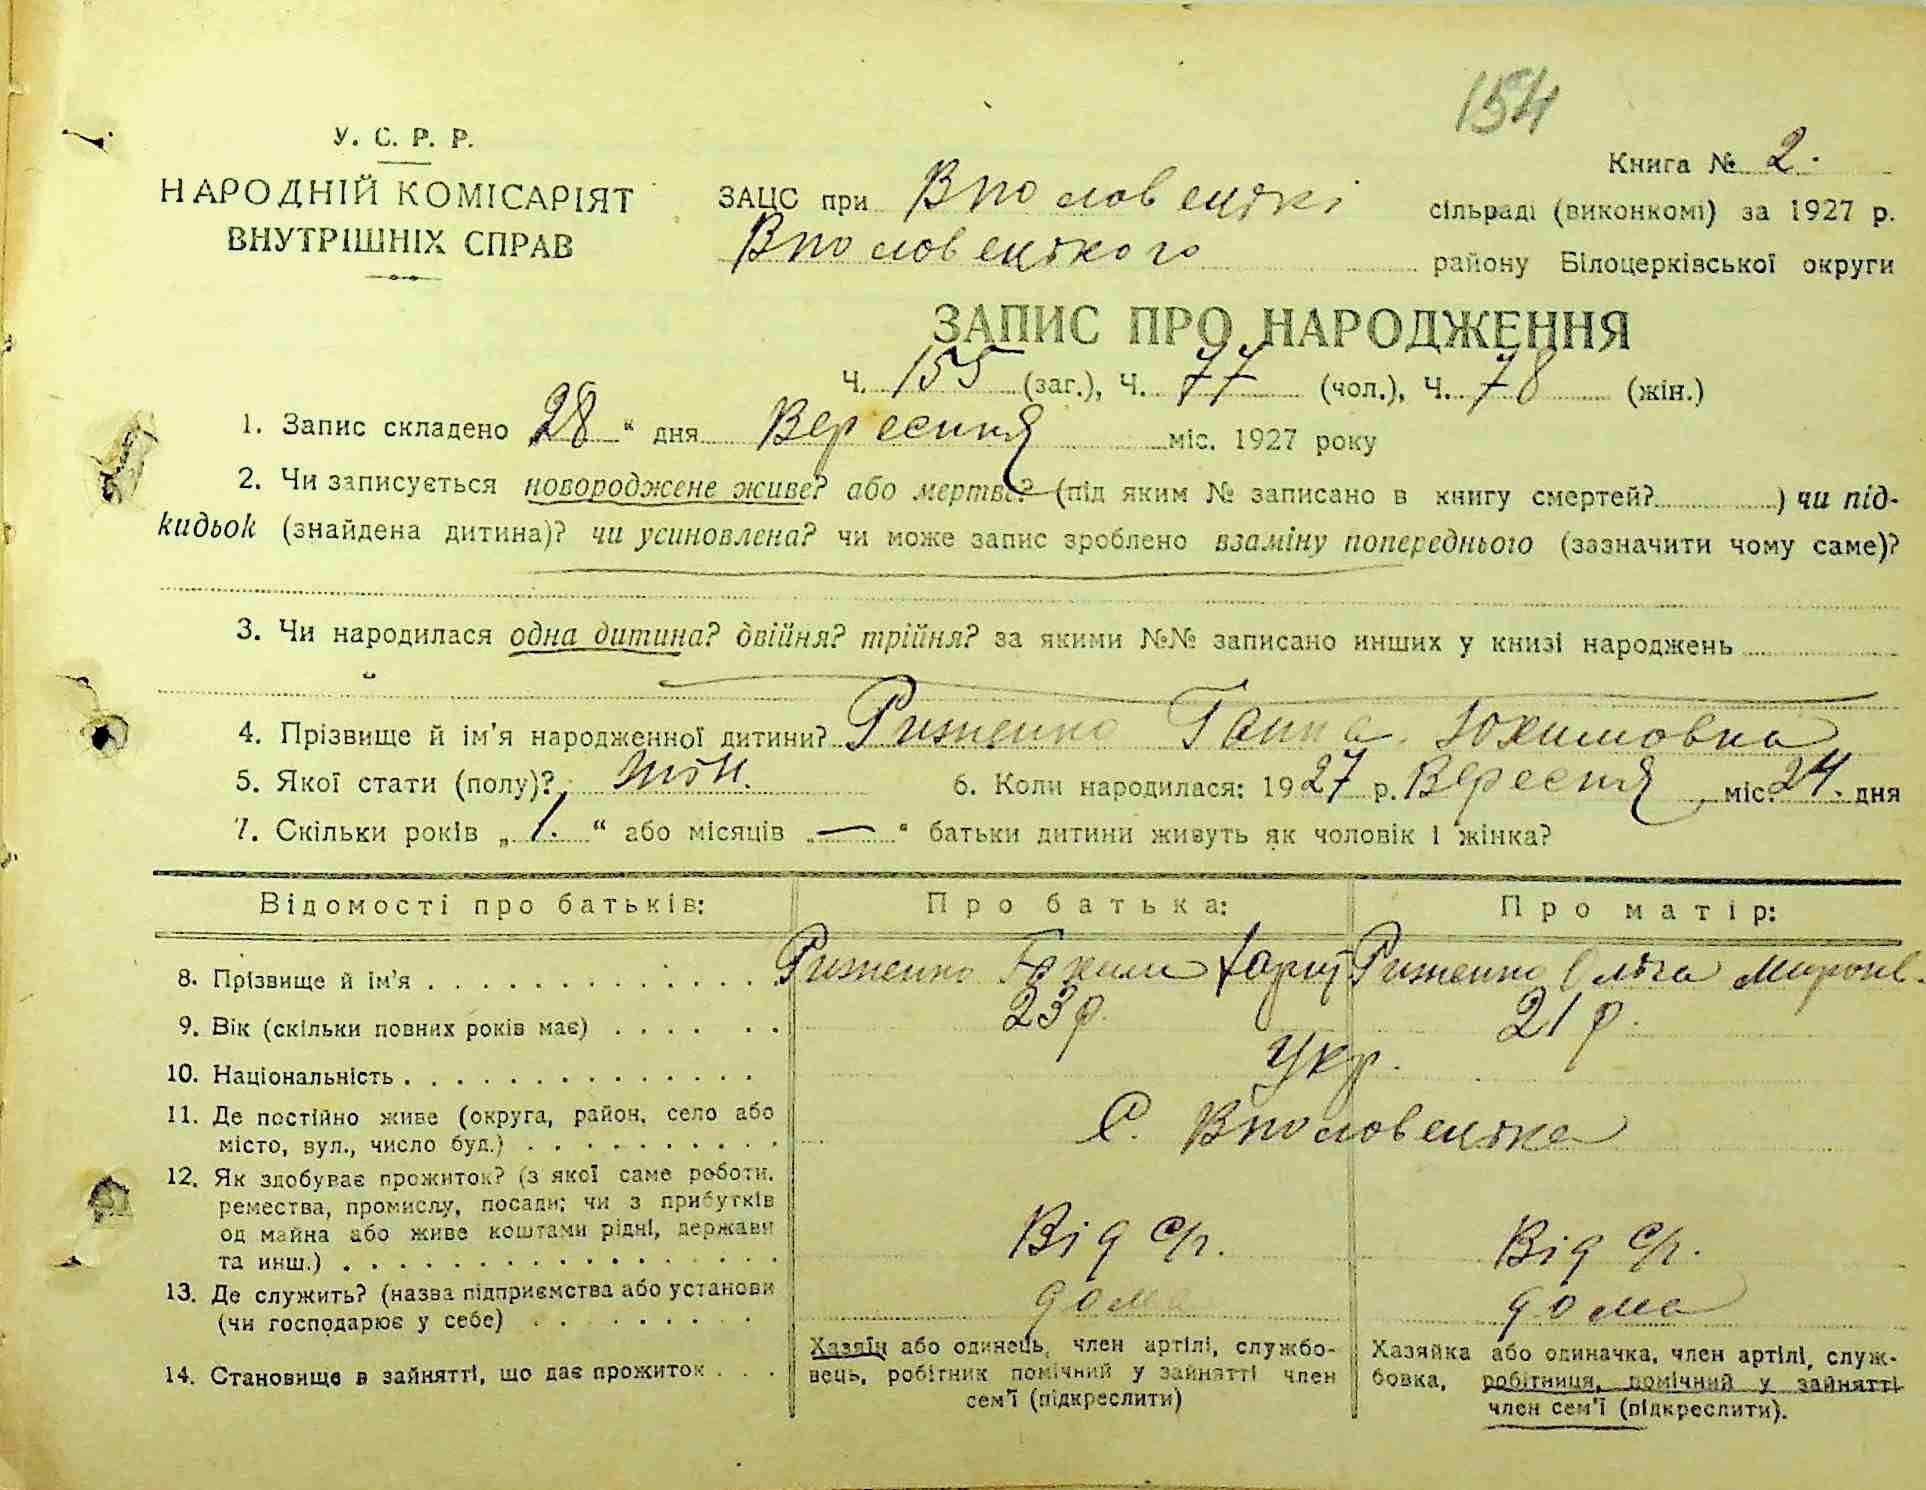 154
У. С. Р. Р.
НАРОДНІЙ КОМІСАРІЯТ
ВНУТРІШНІХ СПРАВ
Книга № 2.
ЗАЦС при Вполовецькі сільраді (виконкомі) за 1927 р.
Вполовецького району Білоцерківської округи
ЗАПИС ПРО НАРОДЖЕННЯ
Ч. 155 (заг.), Ч. 77 (чол.), Ч. 78 (жін.)
1. Запис складено 28 " дня Вересння міс. 1927 року
2. Чи записується новороджене живе? або мертве? (під яким № записано в книгу смертей? ) чи під-
кидьок (знайдена дитина)? чи усиновлена? чи може запис зроблено взаміну попереднього (зазначити чому саме)?
3. Чи народилася одна дитина? двійня? трійня? за якими №№ записано инших у книзі народжень
4. Прізвище й ім'я народженної дитини? Риженко Ганна Юхимовна
5. Якої стати (полу)? жін. 6. Коли народилася: 1927 р. Вересня міс. 24. дня
7. Скільки років „ 1. “ або місяців „ — “ батьки дитини живуть як чоловік і жінка?
Відомості про батьків: Про батька: Про матір:
8. Прізвище й ім'я . . . . . . . . . . . . . . Риженко Юхим Риженко Ольга Миронів.
9. Вік (скільки повних років має) . . . . . . 23 р. 21 р.
10. Національність . . . . . . . . . . . . . . Укр.
11. Де постійно живе (округа, район, село або
місто, вул., число буд.) . . . . . . . . . . С. Вполовецьке
12. Як здобуває прожиток? (з якої саме роботи,
ремества, промислу, посади; чи з прибутків
од майна або живе коштами рідні, держави
та инш.) . . . . . . . . . . . . . . . . . Від с/г. Від с/г.
13. Де служить? (назва підприємства або установи
(чи господарює у себе) . . . . . . . . . дома дома
14. Становище в зайнятті, що дає прожиток . . .
Хазяїн або одинець, член артілі, службо-
вець, робітник помічний у зайнятті член
сем'ї (підкреслити)
Хазяйка або одиначка, член артілі, служ-
бовка, робітниця, помічний у зайнятті
член сем'ї (підкреслити).